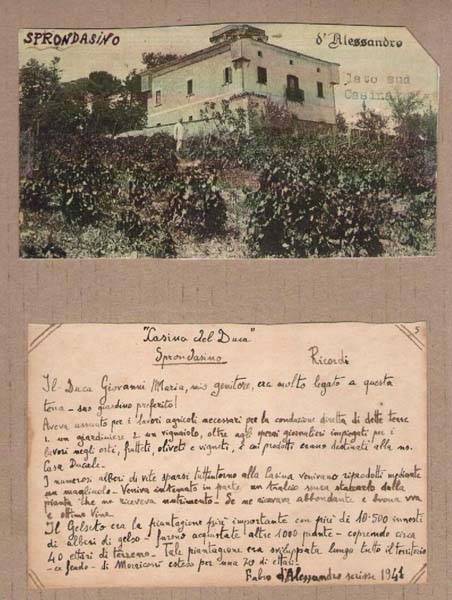 SPRONDASINO
d'Alessandro
lato sud
Casina
5
"Casina del Duca"
Sprondasino
Ricordi
Il Duca Giovanni Maria, mio genitore, era molto legato a questa
terra - suo giardino preferito!
Aveva assunto per i lavori agricoli necessari per la conduzione diretta di dette terre
1. un giardiniere 2. un vignaiolo, oltre agli operai giornalieri impiegati per i
lavori negli orti, frutteti, oliveti e vigneti, i cui prodotti erano destinati alla ns.
Casa Ducale.
I numerosi alberi di vite sparsi tutt'intorno alla Casina venivano riprodotti mediante
un magliuolo - Veniva interrato in parte un tralcio senza staccarlo dalla
pianta che ne riceveva nutrimento - Se ne ricavava abbondante e buona uva
e ottimo vino.
Il Gelseto era la piantagione più importante con più di 10.500 innesti
di alberi di gelso - furono acquistate altre 1000 piante - coprendo circa
40 ettari di terreno - Tale piantagione era sviluppata lungo tutto il territorio
- ex feudo - di Morricone esteso per una 70 di ettari -
Fabio d'Alessandro scrisse 1941